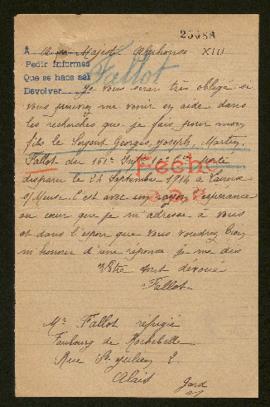 25088
A sa Majesté Alphonse XIII
Pedir informes
Que se hace saber
Devolver
Fallot
Je vous serai très obligé si
vous pouvez me venir en aide dans
les recherches que je fais pour mon
fils le Sergent Georges, Joseph, Martin,
Fallot du 161e Infie 6e
disparu le 24 Septembre 1914 à
s/Meuse. C'est avec un rayon d'espérance
au cœur que je m'adresse à vous
et dans l'espoir que vous voudrez bien
m'honorer d'une réponse je me dis
Votre tout dévoué
Fallot
Fecho
Mr Fallot refugié
Faubourg de Rochebelle
Rue St Julien 2
Alais Gard